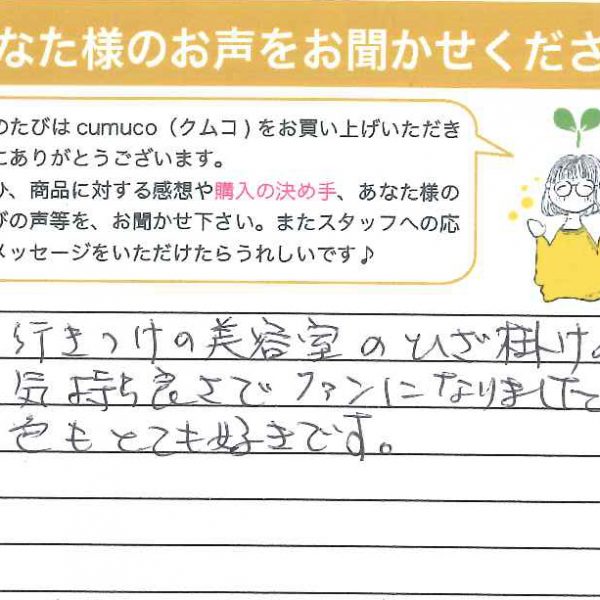 なた様のお声をお聞かせくださ
のたびは cumuco（クムコ）をお買い上げいただき
にありがとうございます。
ひ、商品に対する感想や購入の決め手、あなた様の
びの声等を、お聞かせ下さい。またスタッフへの応
メッセージをいただけたらうれしいです♪
行きつけの美容室のひざ掛けの
気持ち良さでファンになりまして
色もとても好きです。